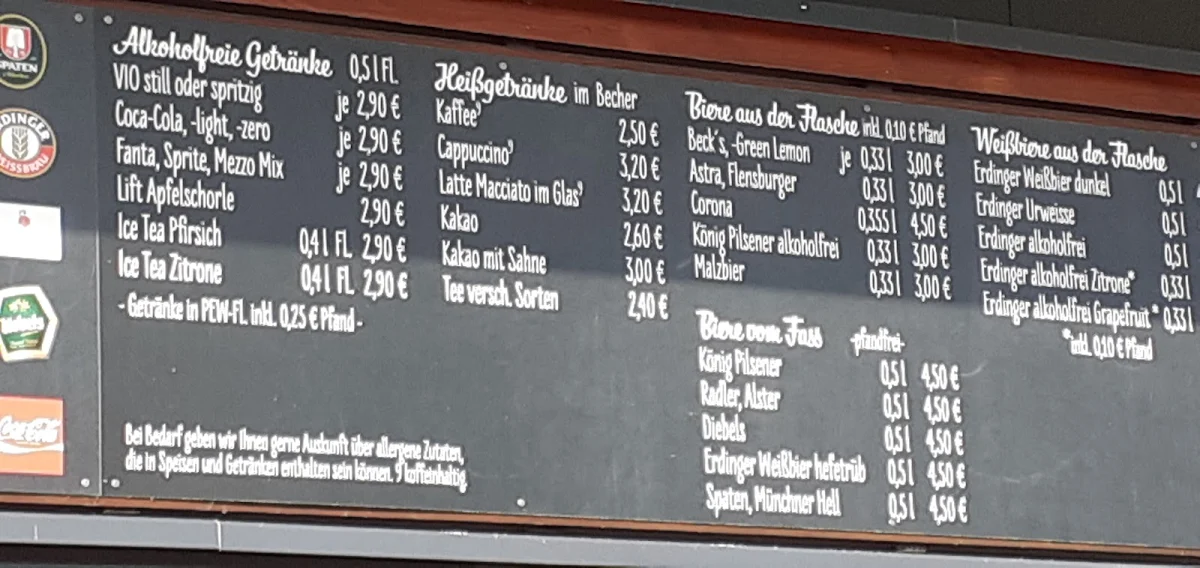 SPATEN
DINGER
EISSBRÄU
Coca-Cola
Alkoholfreie Getränke 0,5 l Fl.
VIO still oder spritzig je 2,90 €
Coca-Cola, -light, -zero je 2,90 €
Fanta, Sprite, Mezzo Mix je 2,90 €
Lift Apfelschorle 2,90 €
Ice Tea Pfirsich 0,4 l FL 2,90 €
Ice Tea Zitrone 0,4 l FL 2,90 €
- Getränke in PEW-FL. inkl. 0,25 € Pfand -
Bei Bedarf geben wir Ihnen gerne Auskunft über allergene Zutaten,
die in Speisen und Getränken enthalten sein können. 9 koffeinhaltig
Heißgetränke im Becher
Kaffee⁹ 2,50 €
Cappuccino⁹ 3,20 €
Latte Macciato im Glas⁹ 3,20 €
Kakao 2,60 €
Kakao mit Sahne 3,00 €
Tee versch. Sorten 2,40 €
Biere aus der Flasche inkl. 0,10 € Pfand
Beck's, -Green Lemon je 0,33 l 3,00 €
Astra, Flensburger 0,33 l 3,00 €
Corona 0,355 l 4,50 €
König Pilsener alkoholfrei 0,33 l 3,00 €
Malzbier 0,33 l 3,00 €
Biere vom Fass -pfandfrei-
König Pilsener 0,5 l 4,50 €
Radler, Alster 0,5 l 4,50 €
Diebels 0,5 l 4,50 €
Erdinger Weißbier hefetrüb 0,5 l 4,50 €
Spaten, Münchner Hell 0,5 l 4,50 €
Weißbiere aus der Flasche
Erdinger Weißbier dunkel 0,5 l
Erdinger Urweisse 0,5 l
Erdinger alkoholfrei 0,5 l
Erdinger alkoholfrei Zitrone* 0,33 l
Erdinger alkoholfrei Grapefruit* 0,33 l
*inkl. 0,10 € Pfand